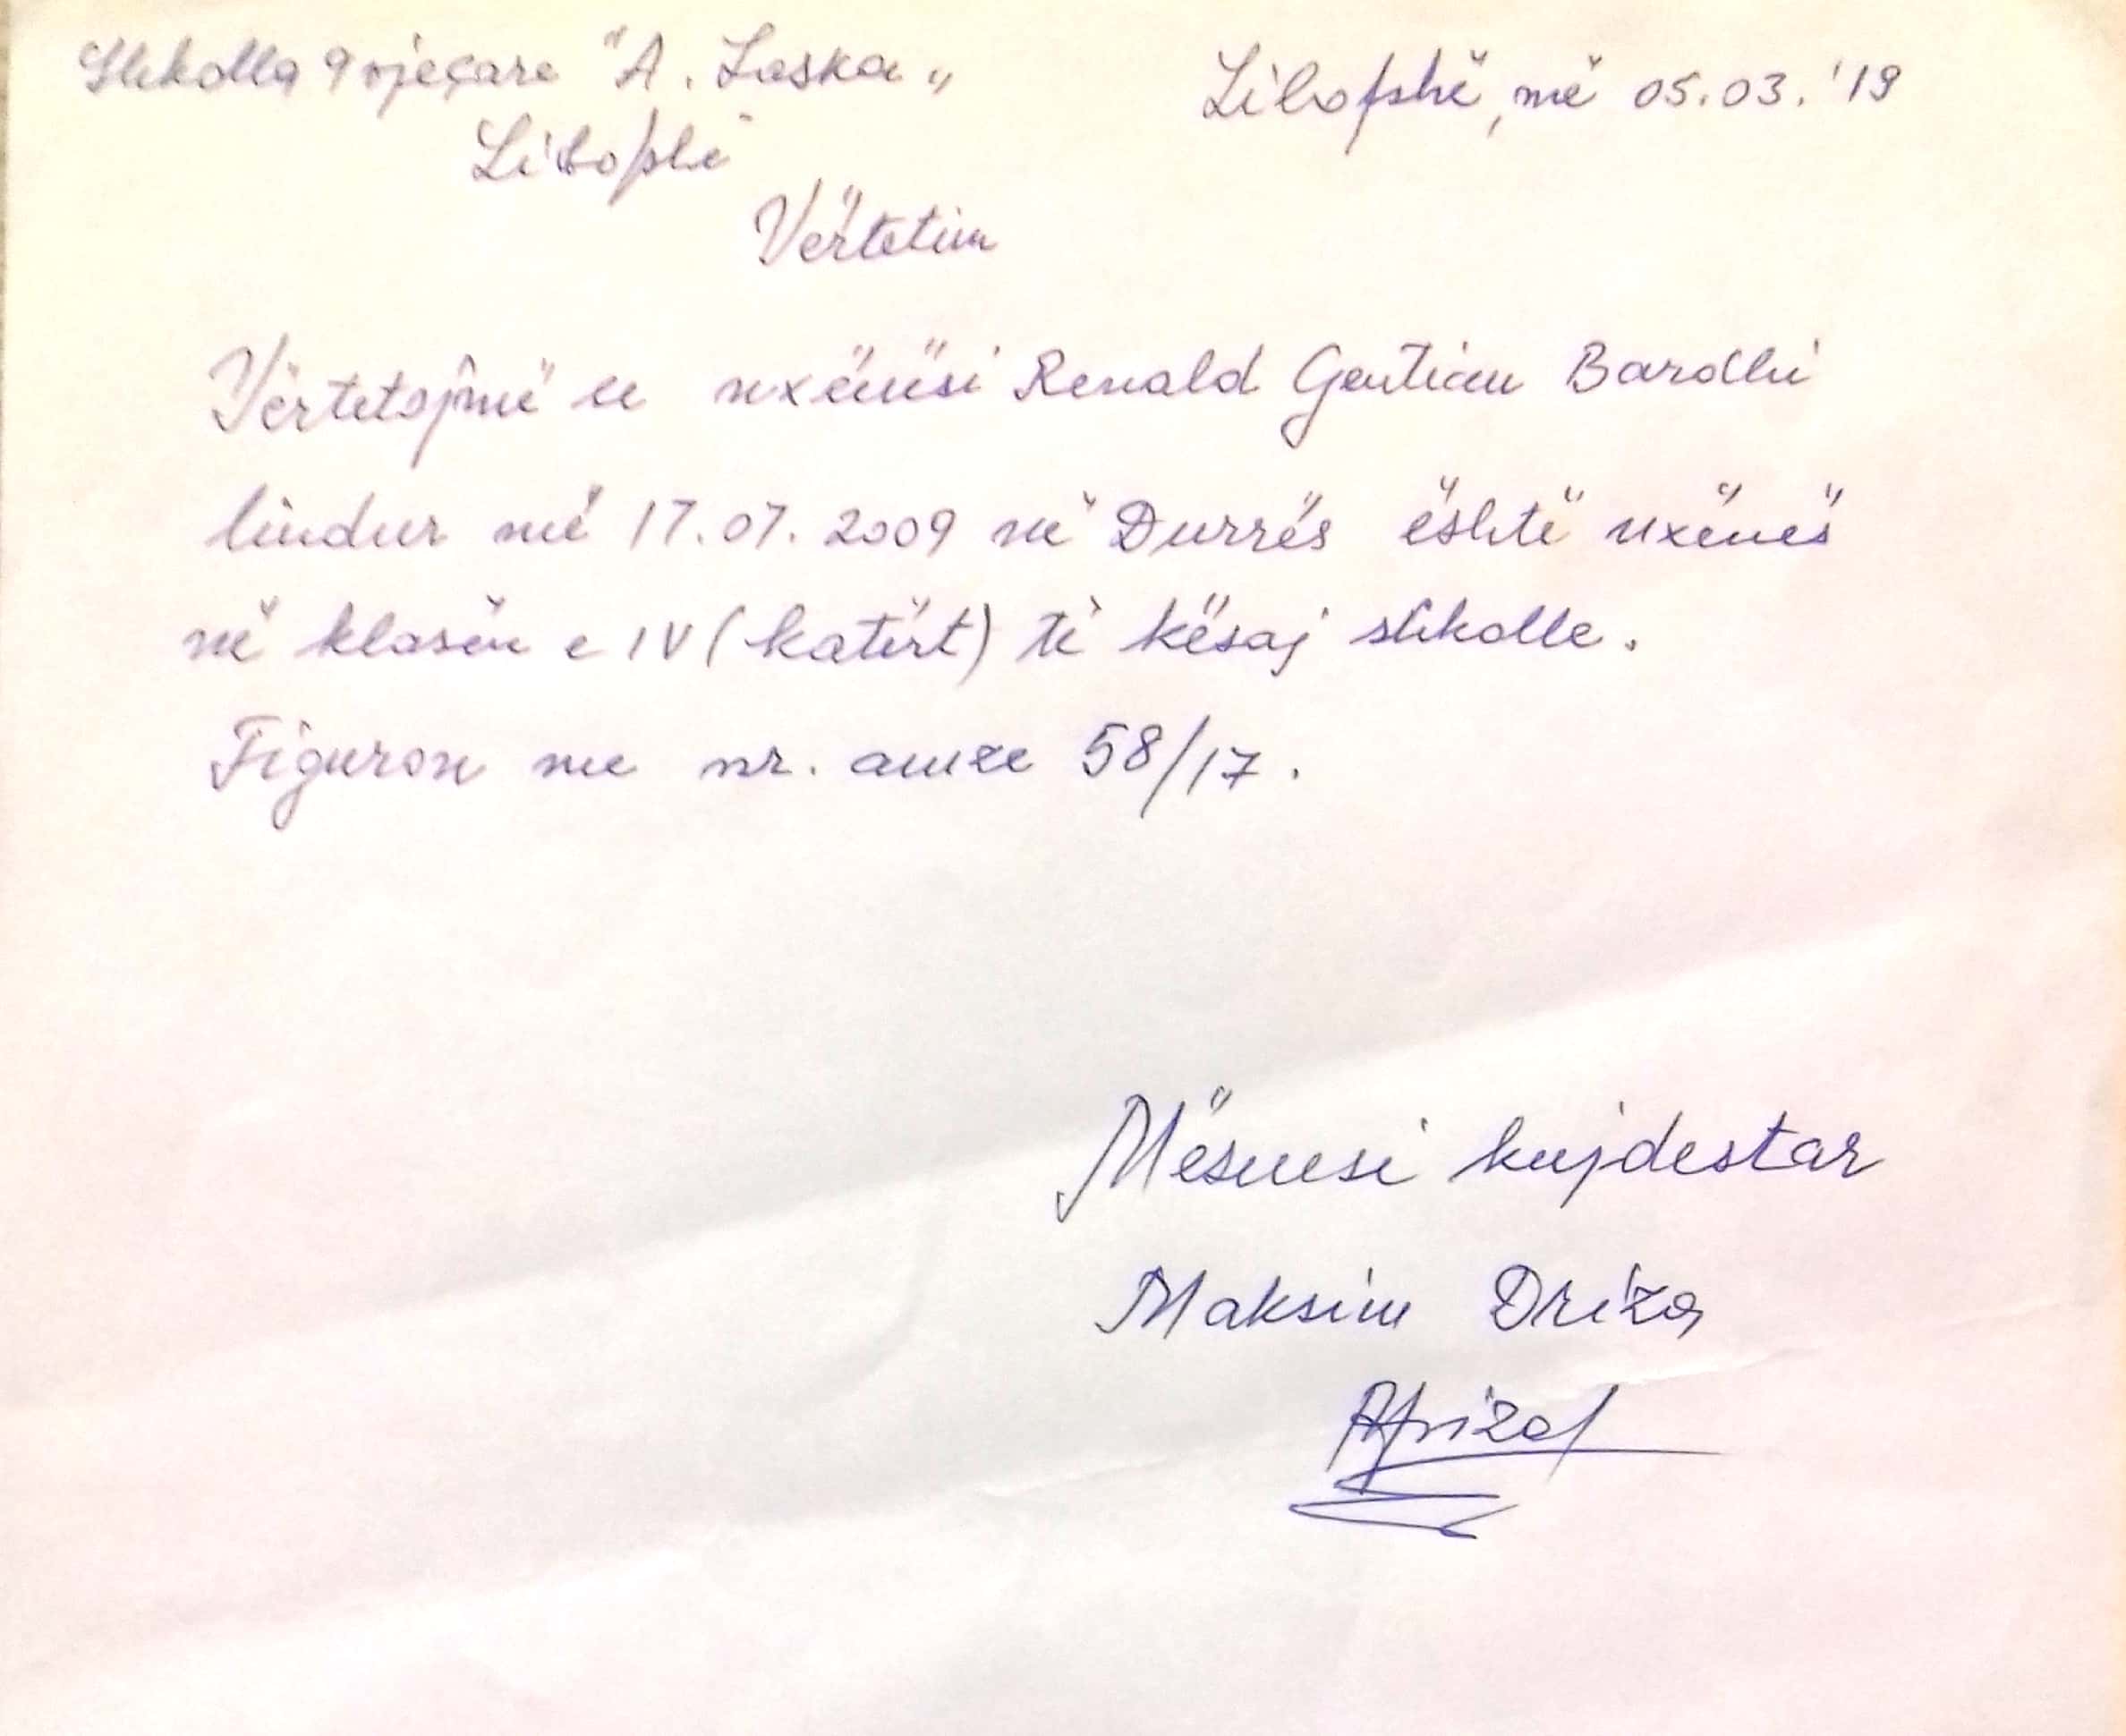 Shkolla 9 vjeçare "A. Laska„
Libofshë
Libofshë, më 05.03.'19
Vërtetim
Vërtetojmë se nxënësi Renald Gentian Bardhi
lindur më 17.07.2009 në Durrës është nxënës
në klasën e IV (katërt) të kësaj shkolle.
Figuron me nr. amze 58/17.
Mësuesi kujdestar
Maksim Driza